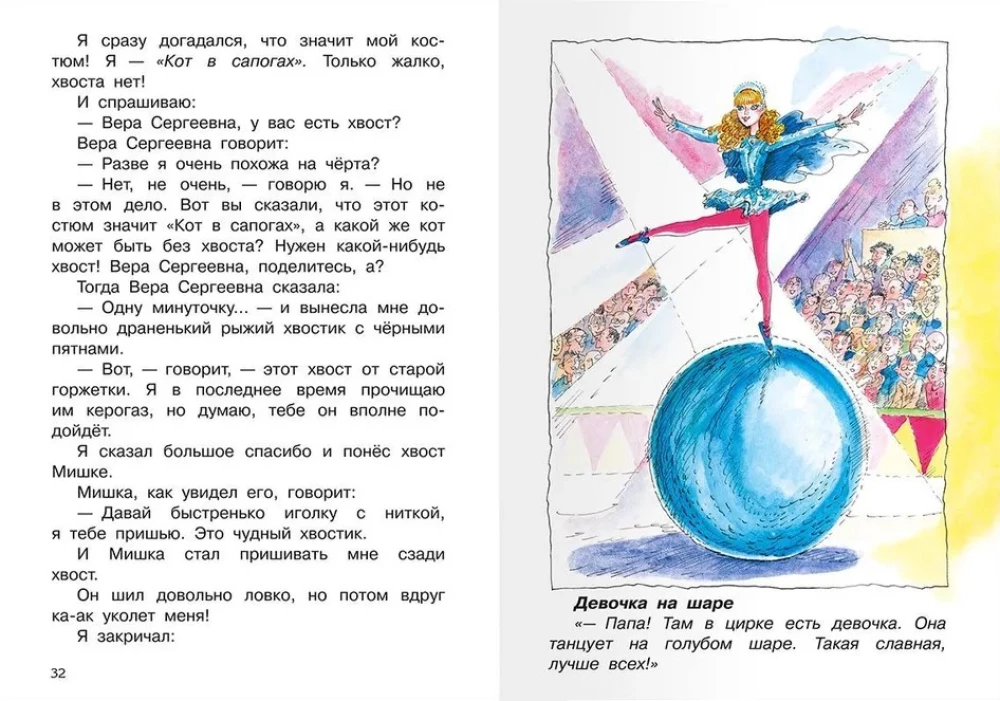 Я сразу догадался, что значит мой кос-
тюм! Я — «Кот в сапогах». Только жалко,
хвоста нет!
И спрашиваю:
— Вера Сергеевна, у вас есть хвост?
Вера Сергеевна говорит:
— Разве я очень похожа на чёрта?
— Нет, не очень, — говорю я. — Но не
в этом дело. Вот вы сказали, что этот ко-
стюм значит «Кот в сапогах», а какой же кот
может быть без хвоста? Нужен какой-нибудь
хвост! Вера Сергеевна, поделитесь, а?
Тогда Вера Сергеевна сказала:
— Одну минуточку... — и вынесла мне до-
вольно драненький рыжий хвостик с чёрными
пятнами.
— Вот, — говорит, — этот хвост от старой
горжетки. Я в последнее время прочищаю
им керогаз, но думаю, тебе он вполне по-
дойдёт.
Я сказал большое спасибо и понёс хвост
Мишке.
Мишка, как увидел его, говорит:
— Давай быстренько иголку с ниткой,
я тебе пришью. Это чудный хвостик.
И Мишка стал пришивать мне сзади
хвост.
Он шил довольно ловко, но потом вдруг
ка-ак уколет меня!
Я закричал:
32
Девочка на шаре
«— Папа! Там в цирке есть девочка. Она
танцует на голубом шаре. Такая славная,
лучше всех!»